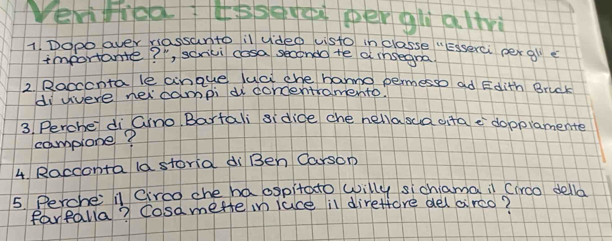 Verifica: Esserci per gli altri
1. Dopo aver riassunto il video visto in classe "Esserci per gli è
importante?", scrivi cosa secondo te ci insegna.
2. Racconta le cinque luci che hanno permesso ad Edith Bruck
di vivere nei campi di concentramento.
3. Perché di Gino Bartali si dice che nella sua vita è doppiamente
campione?
4. Racconta la storia di Ben Carson
5. Perché il Circo che ha ospitato Willy si chiama il Circo della
farfalla? Cosa mette in luce il direttore del circo?